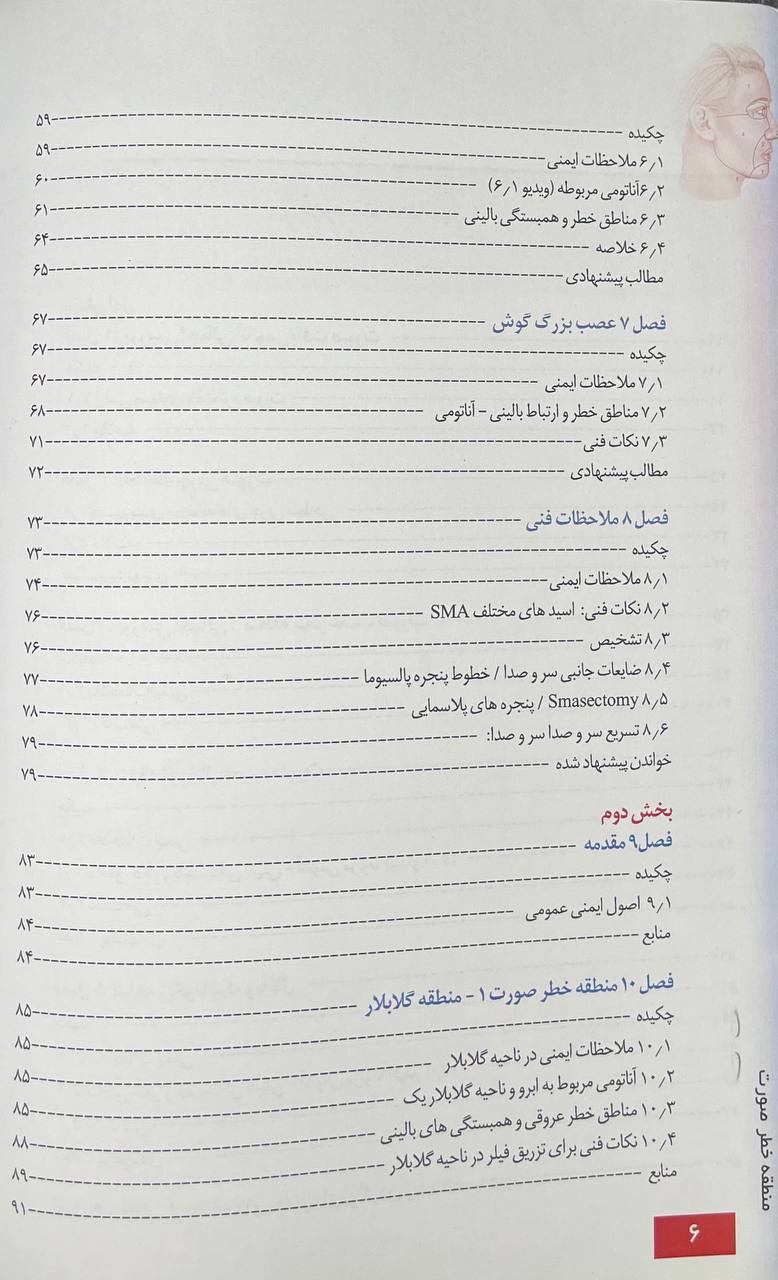 چکیده ---- ۵۹
۶٫۱ ملاحظات ایمنی ---- ۵۹
۶٫۲ آناتومی مربوطه (ویدیو ۶٫۱) ---- ۶۰
۶٫۳ مناطق خطر و همبستگی بالینی ---- ۶۱
۶٫۴ خلاصه ---- ۶۴
مطالب پیشنهادی ---- ۶۵
فصل ۷ عصب بزرگ گوش ---- ۶۷
چکیده ---- ۶۷
۷٫۱ ملاحظات ایمنی ---- ۶۷
۷٫۲ مناطق خطر و ارتباط بالینی - آناتومی ---- ۶۸
۷٫۳ نکات فنی ---- ۷۱
مطالب پیشنهادی ---- ۷۲
فصل ۸ ملاحظات فنی ---- ۷۳
چکیده ---- ۷۳
۸٫۱ ملاحظات ایمنی ---- ۷۴
۸٫۲ نکات فنی: اسید های مختلف SMA ---- ۷۶
۸٫۳ تشخیص ---- ۷۶
۸٫۴ ضایعات جانبی سر و صدا / خطوط پنجره پالسیوما ---- ۷۷
۸٫۵ Smasectomy / پنجره های پلاسمایی ---- ۷۸
۸٫۶ تسریع سر و صدا سر و صدا: ---- ۷۹
خواندن پیشنهاد شده ---- ۷۹
بخش دوم
فصل ۹ مقدمه ---- ۸۳
چکیده ---- ۸۳
۹٫۱ اصول ایمنی عمومی ---- ۸۴
منابع ---- ۸۴
فصل ۱۰ منطقه خطر صورت ۱ - منطقه گلابلار ---- ۸۵
چکیده ---- ۸۵
۱۰٫۱ ملاحظات ایمنی در ناحیه گلابلار ---- ۸۵
۱۰٫۲ آناتومی مربوط به ابرو و ناحیه گلابلار یک ---- ۸۵
۱۰٫۳ مناطق خطر عروقی و همبستگی های بالینی ---- ۸۸
۱۰٫۴ نکات فنی برای تزریق فیلر در ناحیه گلابلار ---- ۸۹
منابع ---- ۹۱
منطقه خطر صورت
۶